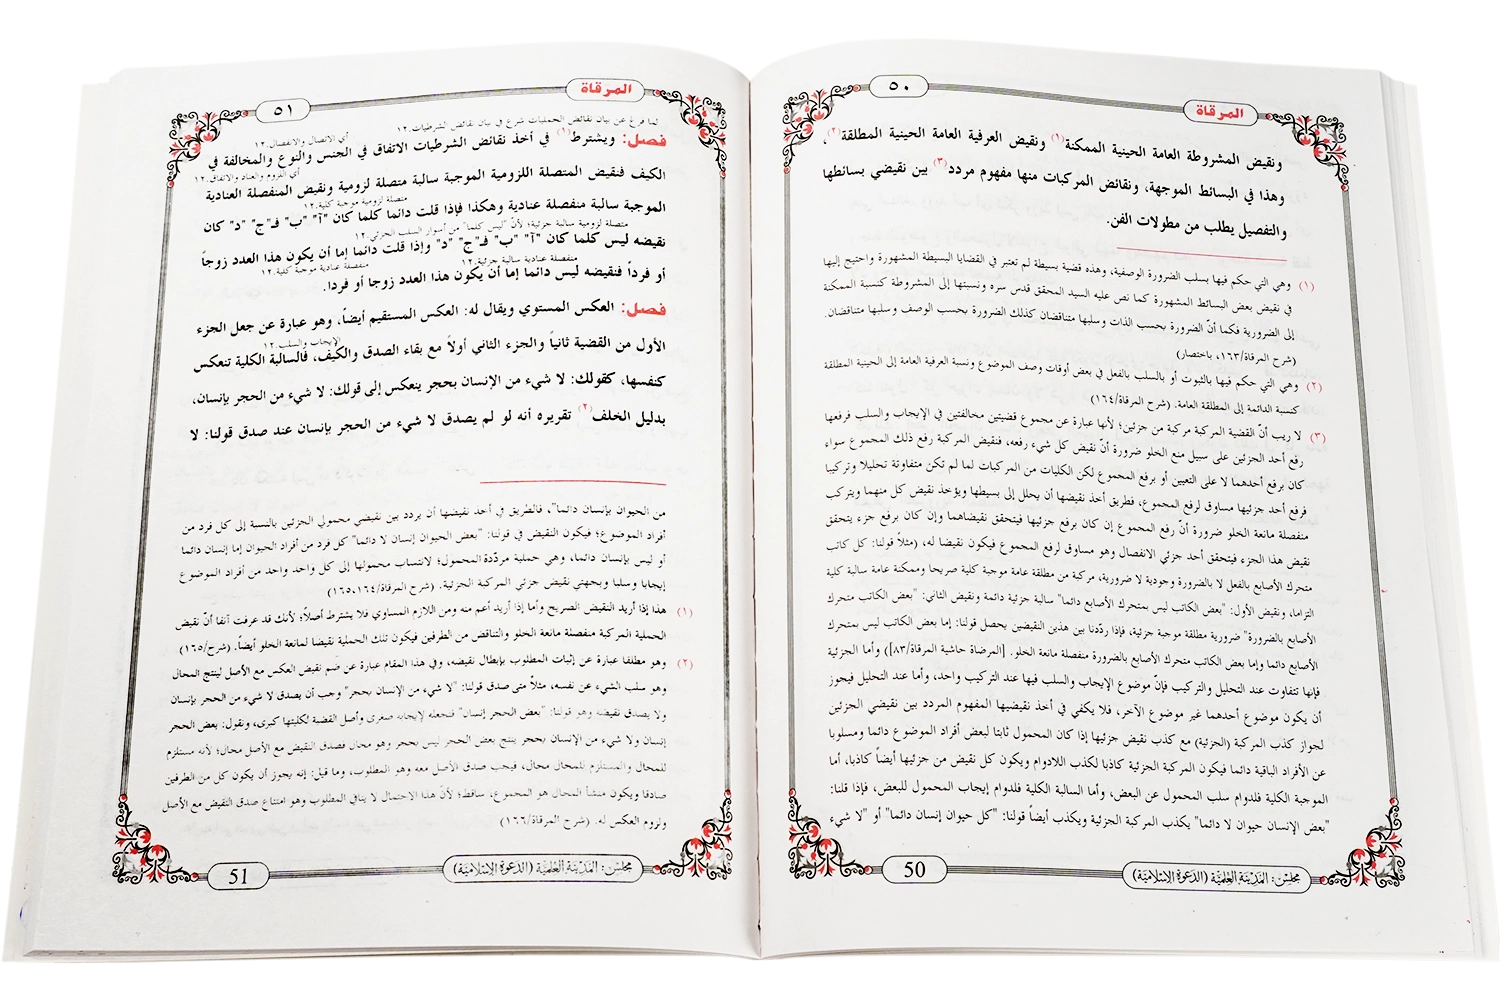 المرقاة
٥٠
ونقيض المشروطة العامة الحينية الممكنة(١) ونقيض العرفية العامة الحينية المطلقة(٢)،
وهذا في البسائط الموجهة، ونقائض المركبات منها مفهوم مردد(٣) بين نقيضي بسائطها
والتفصيل يطلب من مطولات الفن.
(١) وهي التي حكم فيها بسلب الضرورة الوصفية، وهذه قضية بسيطة لم تعتبر في القضايا البسيطة المشهورة واحتيج إليها
في نقيض بعض البسائط المشهورة كما نص عليه السيد المحقق قدس سره ونسبتها إلى المشروطة كنسبة الممكنة
إلى الضرورية فكما أنّ الضرورة بحسب الذات وسلبها متناقضان كذلك الضرورة بحسب الوصف وسلبها متناقضان.
(شرح المرقاة/١٦٣، باختصار)
(٢) وهي التي حكم فيها بالثبوت أو بالسلب بالفعل في بعض أوقات وصف الموضوع ونسبة العرفية العامة إلى الحينية المطلقة
كنسبة الدائمة إلى المطلقة العامة. (شرح المرقاة/١٦٤)
(٣) لا ريب أنّ القضية المركبة مركبة من جزئين؛ لأنها عبارة عن مجموع قضيتين مخالفتين في الإيجاب والسلب فرفعها
رفع أحد الجزئين على سبيل منع الخلو ضرورة أنّ نقيض كل شيء رفعه، فنقيض المركبة رفع ذلك المجموع سواء
كان برفع أحدهما لا على التعيين أو برفع المجموع لكن الكليات من المركبات لما لم تكن متفاوتة تحليلا وتركيبا
فرفع أحد جزئيها مساوق لرفع المجموع، فطريق أخذ نقيضها أن يحلل إلى بسيطها ويؤخذ نقيض كل منهما ويتركب
منفصلة مانعة الخلو ضرورة أنّ رفع المجموع إن كان برفع جزئيها فيتحقق نقيضاهما وإن كان برفع جزء يتحقق
نقيض هذا الجزء فيتحقق أحد جزئي الانفصال وهو مساوق لرفع المجموع فيكون نقيضا له، (مثلاً قولنا: كل كاتب
متحرك الأصابع بالفعل لا بالضرورة وجودية لا ضرورية، مركبة من مطلقة عامة موجبة كلية صريحا وممكنة عامة سالبة كلية
التزاما، ونقيض الأول: "بعض الكاتب ليس بمتحرك الأصابع دائما" سالبة جزئية دائمة ونقيض الثاني: "بعض الكاتب متحرك
الأصابع بالضرورة" ضرورية مطلقة موجبة جزئية، فإذا ردّدنا بين هذين النقيضين يحصل قولنا: إما بعض الكاتب ليس بمتحرك
الأصابع دائما وإما بعض الكاتب متحرك الأصابع بالضرورة منفصلة مانعة الخلو. [المرضاة حاشية المرقاة/٨٣]) وأما الجزئية
فإنها تتفاوت عند التحليل والتركيب فإنّ موضوع الإيجاب والسلب فيها عند التركيب واحد، وأما عند التحليل فيجوز
أن يكون موضوع أحدهما غير موضوع الآخر، فلا يكفي في أخذ نقيضيها المفهوم المردد بين نقيضي الجزئين
لجواز كذب المركبة (الجزئية) مع كذب نقيض جزئيها إذا كان المحمول ثابتا لبعض أفراد الموضوع دائما ومسلوبا
عن الأفراد الباقية دائما فيكون المركبة الجزئية كاذبا لكذب اللادوام ويكون كل نقيض من جزئيها أيضاً كاذبا، أما
الموجبة الكلية فلدوام سلب المحمول عن البعض، وأما السالبة الكلية فلدوام إيجاب المحمول للبعض، فإذا قلنا:
"بعض الإنسان حيوان لا دائما" يكذب المركبة الجزئية ويكذب أيضاً قولنا: "كل حيوان إنسان دائما" أو "لا شيء
مجلس: المدينة العلمية (الدعوة الإسلامية)
50
المرقاة
٥١
لما فرغ عن بيان نقائض الحمليات شرع في بيان نقائض الشرطيات.١٢
أي الاتصال والانفصال.١٢
فصل: ويشترط(١) في أخذ نقائض الشرطيات الاتفاق في الجنس والنوع والمخالفة في
أي اللزوم والعناد والاتفاق.١٢
الكيف فنقيض المتصلة اللزومية الموجبة سالبة متصلة لزومية ونقيض المنفصلة العنادية
متصلة لزومية موجبة كلية.١٢
الموجبة سالبة منفصلة عنادية وهكذا فإذا قلت دائما كلما كان "آ" "ب" فـ"ج" "د" كان
متصلة لزومية سالبة جزئية؛ لأنّ "ليس كلما" من أسوار السلب الجزئي.١٢
نقيضه ليس كلما كان "آ" "ب" فـ"ج" "د" وإذا قلت دائما إما أن يكون هذا العدد زوجاً
منفصلة عنادية سالبة جزئية.١٢
منفصلة عنادية موجبة كلية.١٢
أو فرداً فنقيضه ليس دائما إما أن يكون هذا العدد زوجا أو فردا.
فصل: العكس المستوي ويقال له: العكس المستقيم أيضاً، وهو عبارة عن جعل الجزء
الأول من القضية ثانياً والجزء الثاني أولاً مع بقاء الصدق والكيف، فالسالبة الكلية تنعكس
الإيجاب والسلب.١٢
كنفسها، كقولك: لا شيء من الإنسان بحجر ينعكس إلى قولك: لا شيء من الحجر بإنسان،
بدليل الخلف(٢) تقريره أنه لو لم يصدق لا شيء من الحجر بإنسان عند صدق قولنا: لا
من الحيوان بإنسان دائما"، فالطريق في أخذ نقيضها أن يردد بين نقيضي محمولي الجزئين بالنسبة إلى كل فرد من
أفراد الموضوع؛ فيكون النقيض في قولنا: "بعض الحيوان إنسان لا دائما" كل فرد من أفراد الحيوان إما إنسان دائما
أو ليس بإنسان دائما، وهي حملية مردّدة المحمول؛ لانتساب محمولها إلى كل واحد واحد من أفراد الموضوع
إيجابا وسلبا وبجهتي نقيض جزئي المركبة الجزئية. (شرح المرقاة/١٦٤،١٦٥)
(١) هذا إذا أريد النقيض الصريح وأما إذا أريد أعم منه ومن اللازم المساوي فلا يشترط أصلاً؛ لأنك قد عرفت آنفا أنّ نقيض
الحملية المركبة منفصلة مانعة الخلو والتناقض من الطرفين فيكون تلك الحملية نقيضا لمانعة الخلو أيضاً. (شرح/١٦٥)
(٢) وهو مطلقا عبارة عن إثبات المطلوب بإبطال نقيضه، وفي هذا المقام عبارة عن ضم نقيض العكس مع الأصل لينتج المحال
وهو سلب الشيء عن نفسه، مثلاً متى صدق قولنا: "لا شيء من الإنسان بحجر" وجب أن يصدق لا شيء من الحجر بإنسان
ولا يصدق نقيضه وهو قولنا: "بعض الحجر إنسان" فنجعله لإيجابه صغرى وأصل القضية لكليتها كبرى، ونقول: بعض الحجر
إنسان ولا شيء من الإنسان بحجر ينتج بعض الحجر ليس بحجر وهو محال فصدق النقيض مع الأصل محال؛ لأنه مستلزم
للمحال والمستلزم للمحال محال، فيجب صدق الأصل معه وهو المطلوب، وما قيل: إنه يجوز أن يكون كل من الطرفين
صادقا ويكون منشأ المحال هو المجموع، ساقط؛ لأنّ هذا الاحتمال لا ينافي المطلوب وهو امتناع صدق النقيض مع الأصل
ولزوم العكس له. (شرح المرقاة/١٦٦)
مجلس: المدينة العلمية (الدعوة الإسلامية)
51